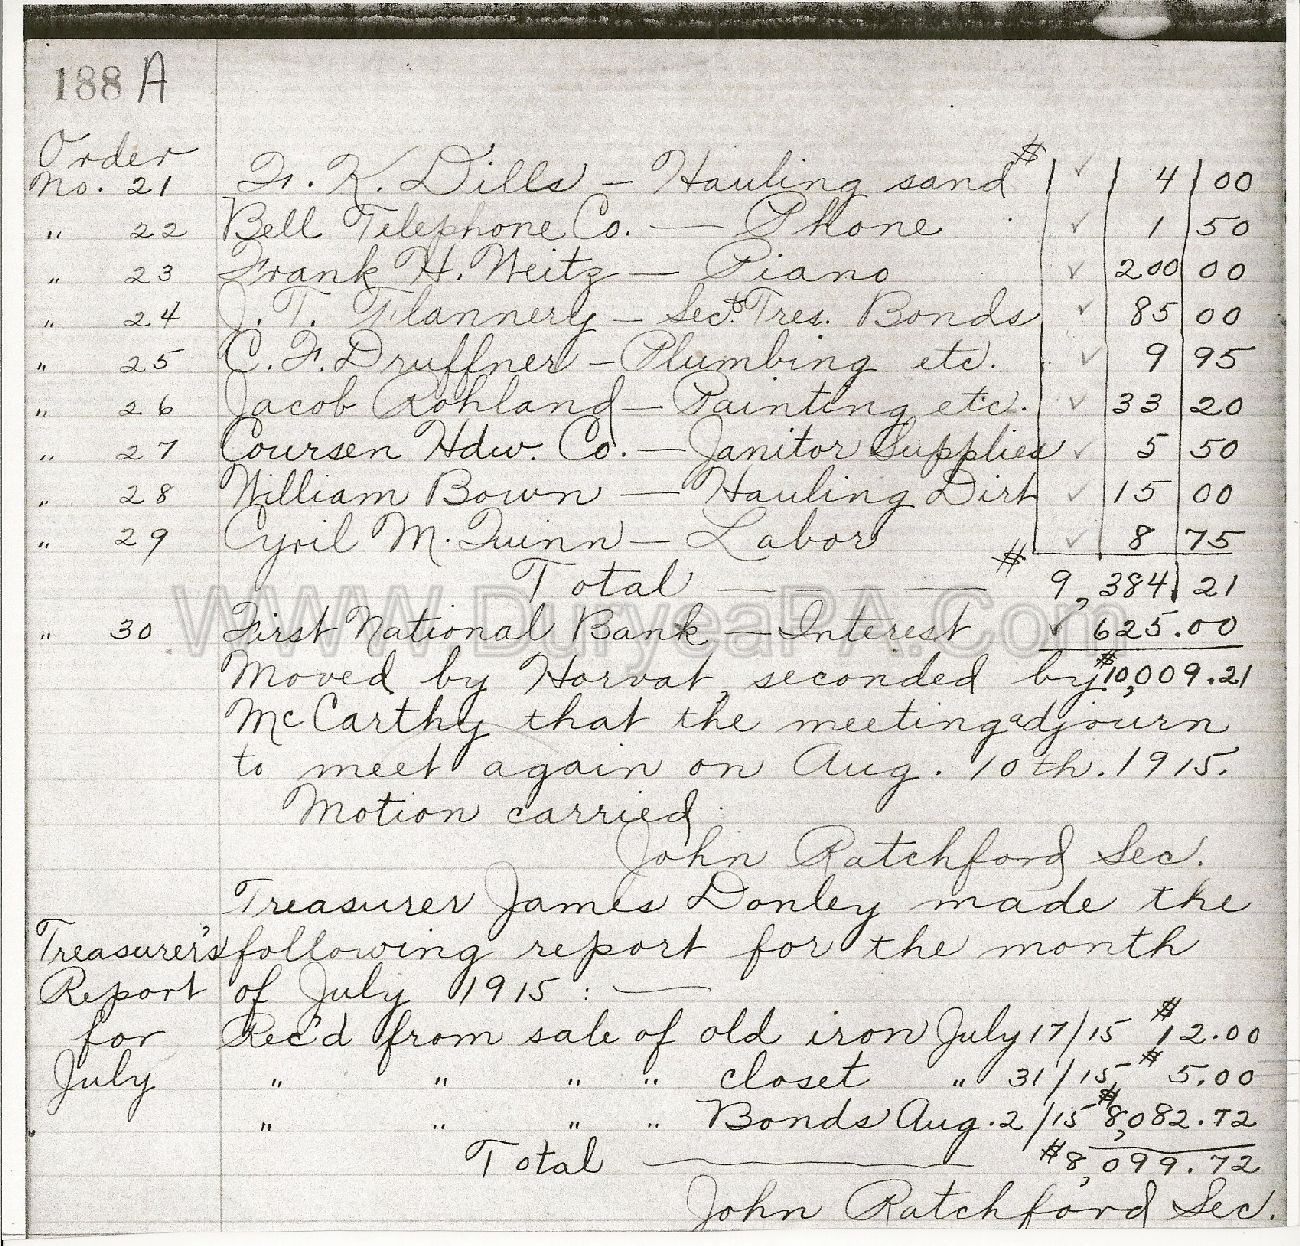 188 A
Order
No. 21 F. K. Dills — Hauling sand $ ✓ 4 00
" 22 Bell Telephone Co. — Phone ✓ 1 50
" 23 Frank H. Weitz — Piano ✓ 200 00
" 24 J. T. Flannery — Sec. & Tres. Bonds ✓ 85 00
" 25 C. F. Druffner — Plumbing etc. ✓ 9 95
" 26 Jacob Rohland — Painting etc. ✓ 33 20
" 27 Coursen Hdw. Co. — Janitor Supplies ✓ 5 50
" 28 William Bown — Hauling Dirt ✓ 15 00
" 29 Cyril M. Quinn — Labor ✓ 8 75
Total — — $ 9,384 21
WWW.DuryeaPA.Com
" 30 First National Bank — Interest ✓ 625.00
Moved by Horvat, seconded by $10,009.21
McCarthy that the meeting adjourn
to meet again on Aug. 10th. 1915.
Motion carried
John Ratchford Sec.
Treasurer James Donley made the
Treasurer's following report for the month
Report of July 1915 : —
for Rec'd from sale of old iron July 17/15 $12.00
July " " " " closet " 31/15, $5.00
" " " " Bonds Aug. 2/15 $8,082.72
Total — $8,099.72
John Ratchford Sec.